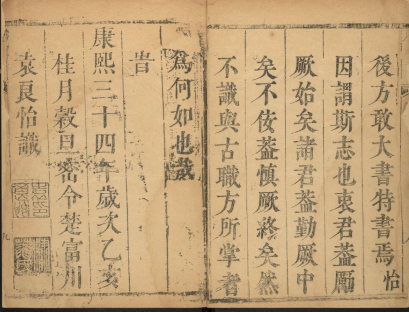 後方敢大書特書焉怡
因謂斯志也袁君葢勵
厥始矣諸君葢勤厥中
矣不佞葢慎厥終矣然
不識與古職方所掌者
為何如也敬
旹
康熙三十四年歲次乙亥
桂月穀旦 令楚富川
袁良怡識